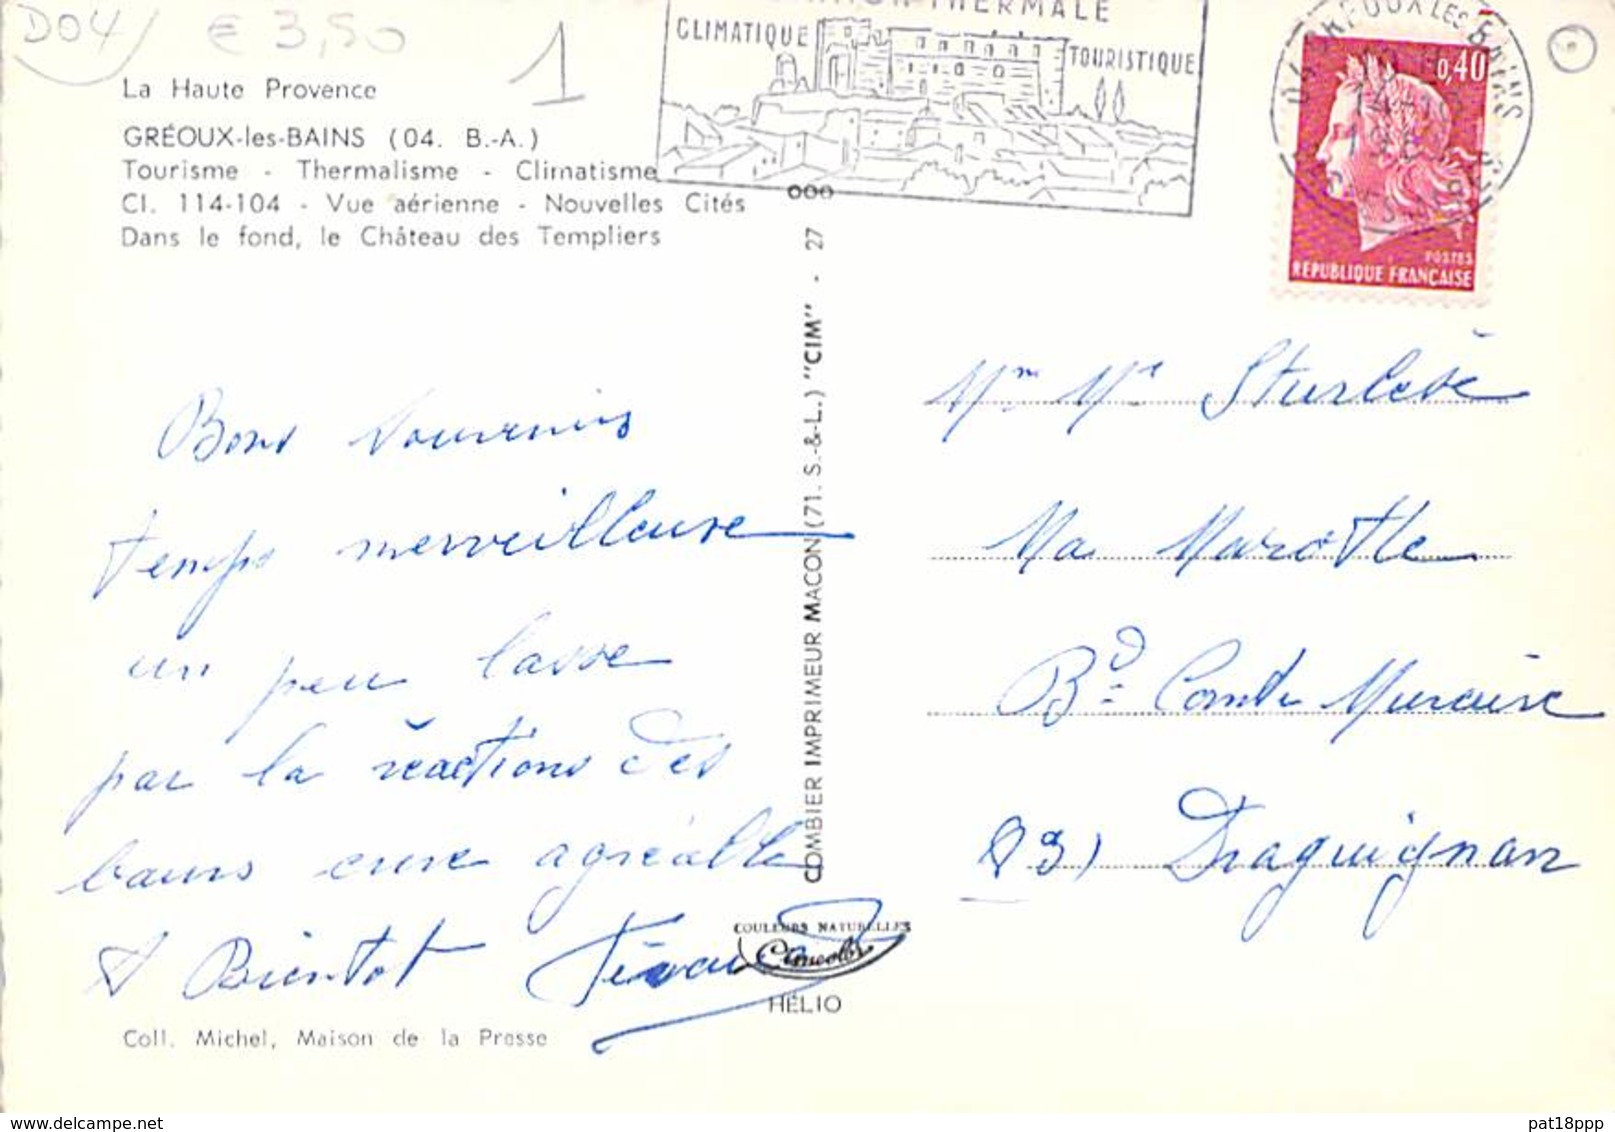 D04
€ 3,50
1
THERMALE
CLIMATIQUE
TOURISTIQUE
GREOUX LES BAINS
0,40
POSTES
REPUBLIQUE FRANÇAISE
La Haute Provence
GRÉOUX-les-BAINS (04. B.-A.)
Tourisme - Thermalisme - Climatisme
Cl. 114-104 - Vue aérienne - Nouvelles Cités
Dans le fond, le Château des Templiers
Bons souvenirs
temps merveilleuse
un peu lasse
par la réactions des
bains agréable
A Bientot
Coll. Michel, Maison de la Presse
COMBIER IMPRIMEUR MACON (71. S.-&-L.) "CIM" - 27
COULEURS NATURELLES
Cimcolor
HÉLIO
Mr Me Sturlèse
Ma Marotte
Bd Comte Muraire
83) Draguignan
pat18ppp